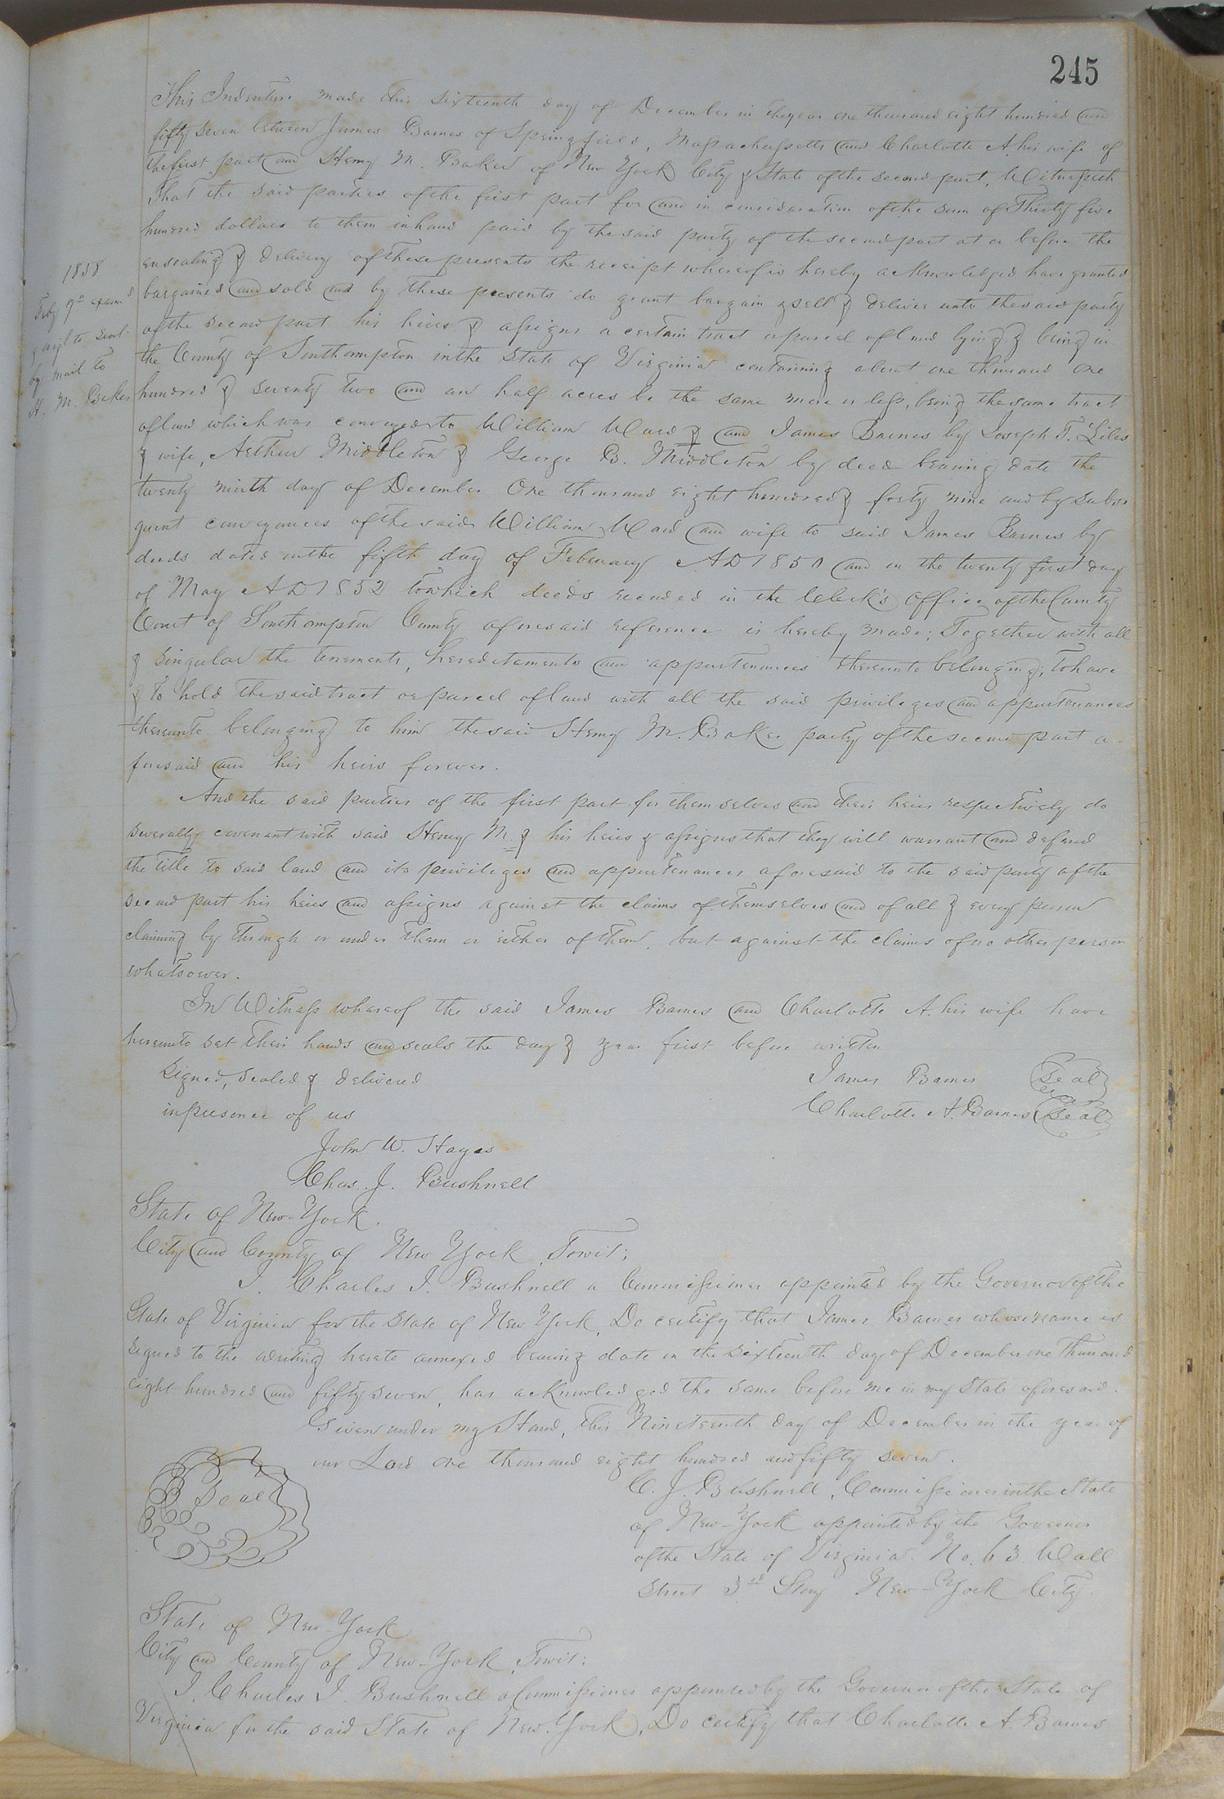 245
This Indenture made this sixteenth day of December in the year one thousand eight hundred and
fifty seven between James Barnes of Springfield, Massachusetts and Charlotte A. his wife of
the first part and Henry M. Baker of New York City & State of the second part, Witnesseth
That the said parties of the first part for and in consideration of the sum of Thirty five
hundred dollars to them in hand paid by the said party of the second part at or before the
ensealing & delivery of these presents the receipt whereof is hereby acknowledged have granted
bargained and sold and by these presents do grant bargain & sell & deliver unto the said party
of the second part his heirs & assigns a certain tract or parcel of land lying & being in
the County of Southampton in the State of Virginia containing about one thousand one
hundred & seventy two and an half acres be the same more or less, being the same tract
of land which was conveyed to William Ward & and James Barnes by Joseph T. Liles
& wife, Arthur Middleton & George B. Middleton by deed bearing date the
twenty ninth day of December One thousand eight hundred & forty nine and by subse
quent conveyances of the said William Ward and wife to said James Barnes by
deeds dated on the fifth day of February AD 1851 and on the twenty first day
of May AD 1852 to which deeds recorded in the Clerk's office of the County
Court of Southampton County aforesaid reference is hereby made; Together with all
& singular the tenements, hereditaments and appurtenances thereunto belonging; To have
& to hold the said tract or parcel of land with all the said privileges and appurtenances
thereunto belonging to him the said Henry M. Baker party of the second part a-
foresaid and his heirs forever.
And the said parties of the first part for themselves and their heirs respectively do
severally covenant with said Henry M & his heirs & assigns that they will warrant and defend
the title to said land and its privileges and appurtenances aforesaid to the said party of the
second part his heirs and assigns against the claims of themselves and of all & every person
claiming by through or under them or either of them, but against the claims of no other person
whatsoever.
In Witness whereof the said James Barnes and Charlotte A. his wife have
hereunto set their hands and seals the day & year first before written
Signed, sealed & delivered
in presence of us
James Barnes Seal
Charlotte A. Barnes Seal
John W. Hayes
Chas. J. Bushnell
State of New-York.
City and County of New York, Towit;
I, Charles J. Bushnell a Commissioner appointed by the Governor of the
State of Virginia for the State of New York, Do certify that James Barnes whose name is
signed to the writing hereto annexed bearing date on the sixteenth day of December one thousand
eight hundred and fifty seven, has acknowledged the same before me in my State aforesaid.
Given under my Hand, this Nineteenth day of December in the year of
our Lord one thousand eight hundred and fifty seven.
Seal
C. J. Bushnell, Commissioner in the State
of New-York appointed by the Governor
of the State of Virginia No. 63 Wall
Street 3rd Story New-York City.
State of New-York
City and County of New-York, Towit;
I, Charles J. Bushnell a Commissioner appointed by the Governor of the State of
Virginia for the said State of New-York, Do certify that Charlotte A. Barnes
1858
Feby 9th exam'd
by mail to
H. M. Baker